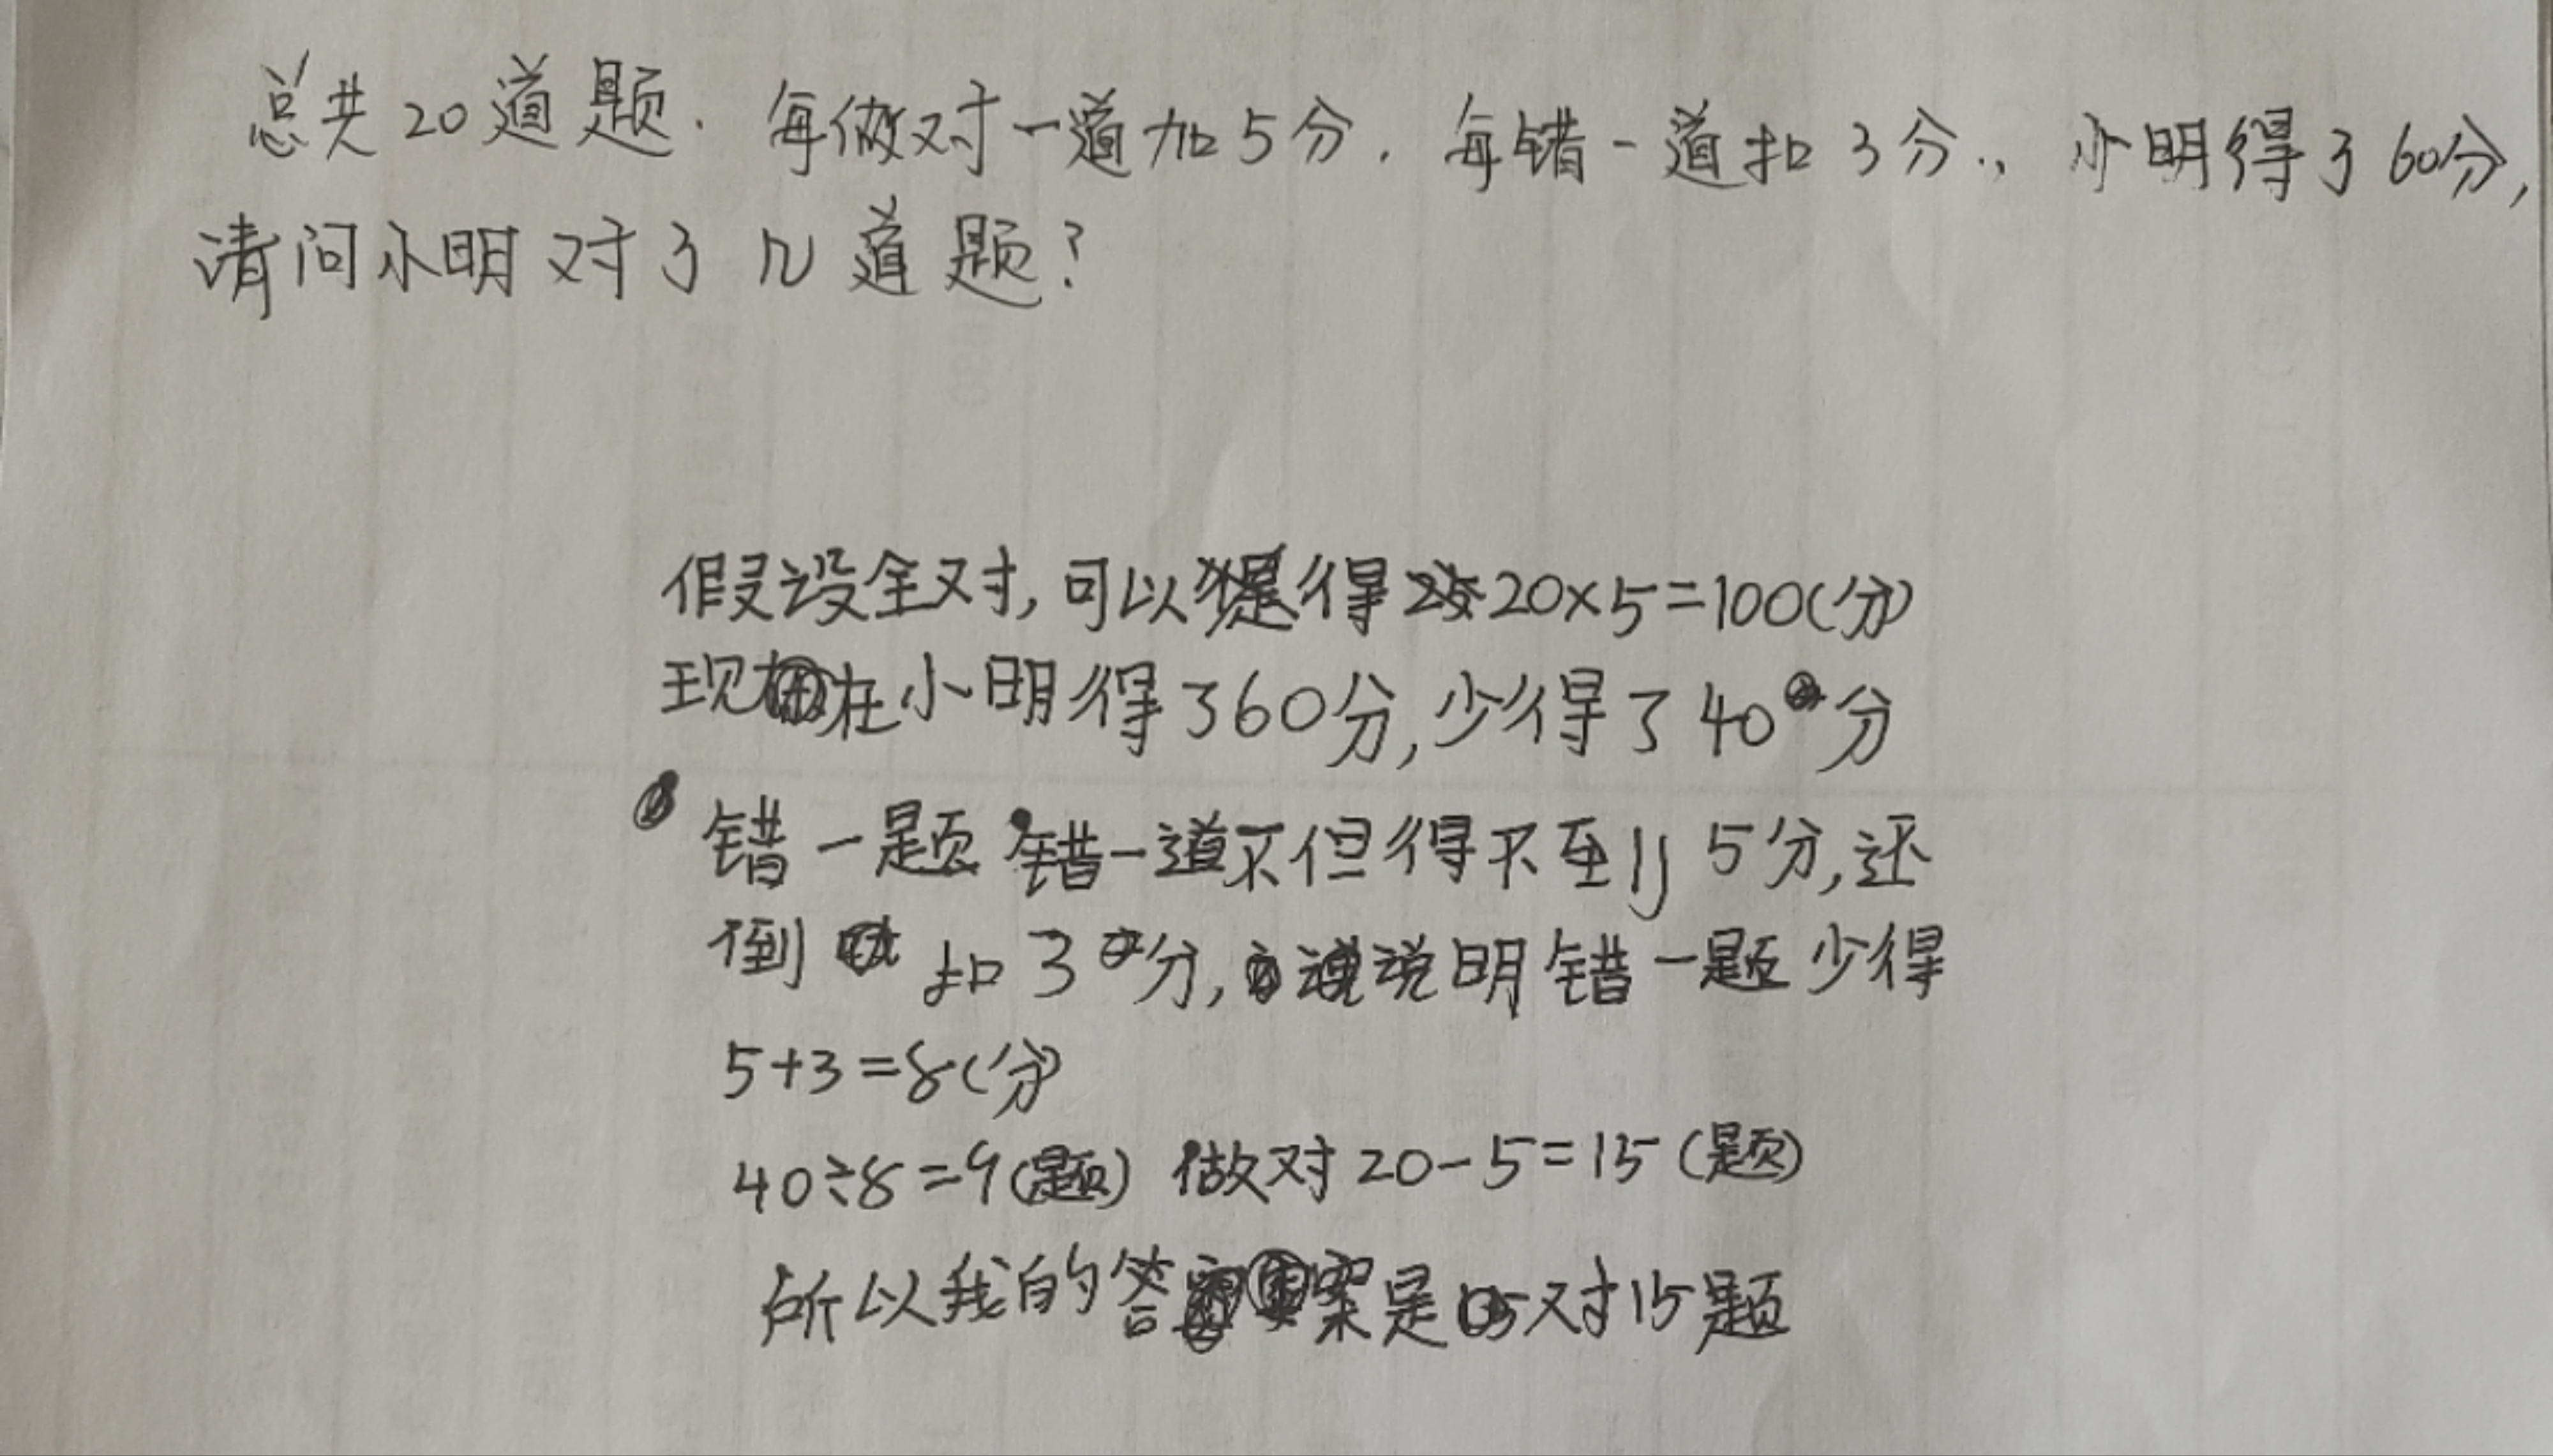 总共20道题. 每做对一道加5分. 每错一道扣3分., 小明得了60分,
请问小明对了几道题?
假设全对, 可以得20×5=100(分)
现在小明得了60分,少得了40分
错一题 错一道不但得不到5分,还
倒扣3分,说明错一题少得
5+3=8(分)
40÷8=9(题) 做对20-5=15(题)
所以我的答案是对15题